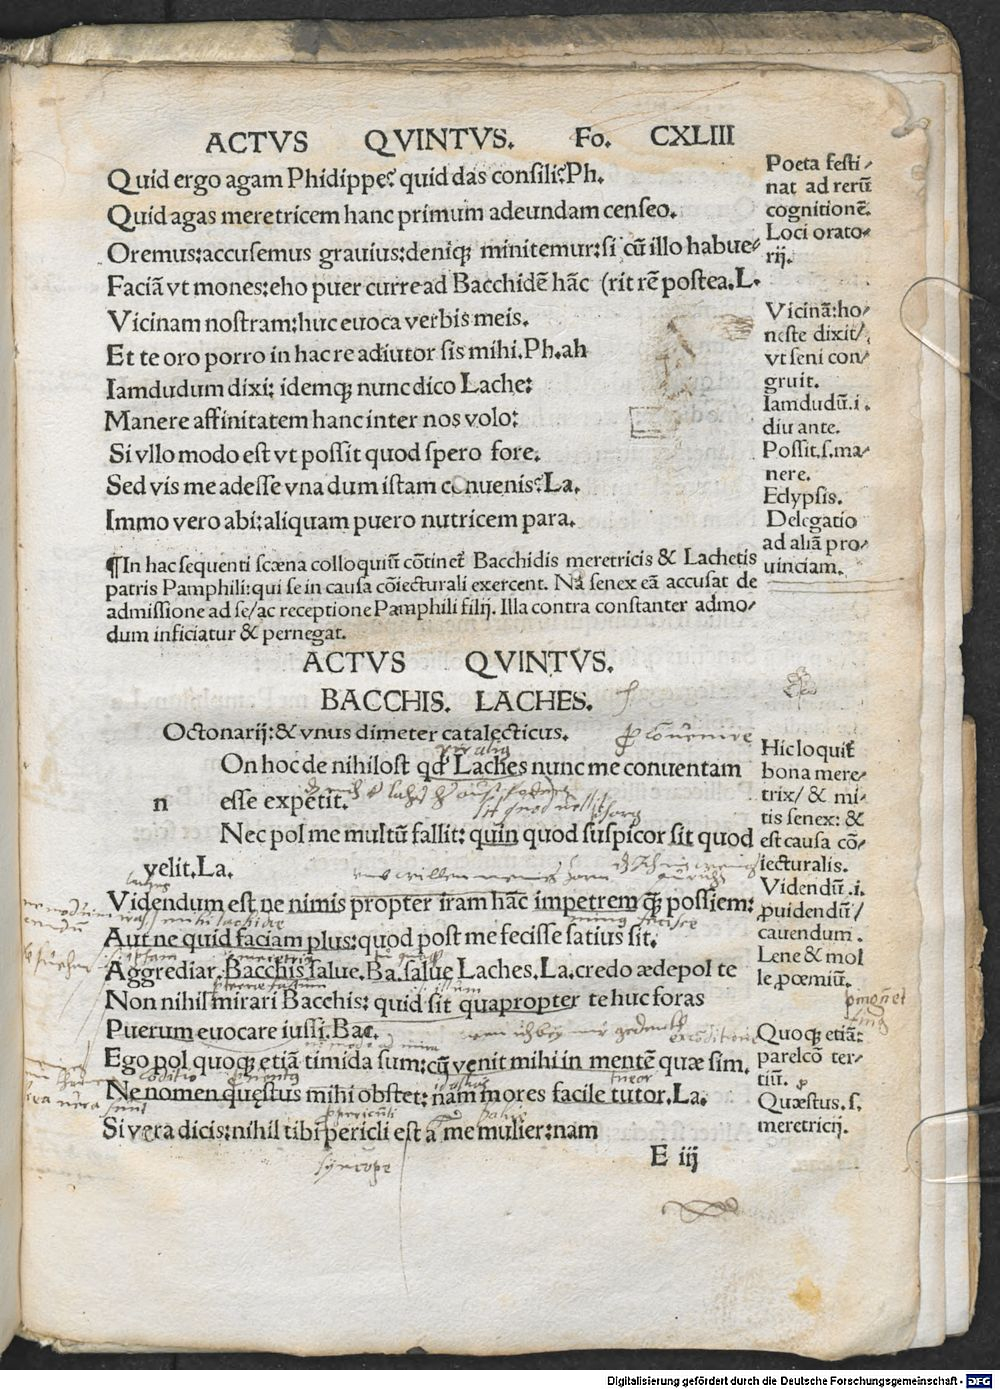 ACTVS QVINTVS. Fo. CXLIII
Quid ergo agam Phidippe? quid das consili? Ph.
Quid agas meretricem hanc primum adeundam censeo.
Oremus: accusemus grauius: deniqꝫ minitemur: si cū illo habue⸗
Faciā vt mones: eho puer curre ad Bacchidē hāc (rit rē postea. L.
Vicinam nostram: huc euoca verbis meis.
Et te oro porro in hac re adiutor sis mihi. Ph. ah
Iamdudum dixi: idemqꝫ nunc dico Lache:
Manere affinitatem hanc inter nos volo:
Si vllo modo est vt possit quod spero fore.
Sed vis me adesse vna dum istam conuenis? La.
Immo vero abi: aliquam puero nutricem para.
Poeta festi⸗
nat ad rerū
cognitionē.
Loci orato⸗
rij.
Vicinā: ho⸗
neste dixit/
vt seni con⸗
gruit.
Iamdudū. i.
diu ante.
Possit. s. ma⸗
nere.
Eclypsis.
Delegatio
ad aliā pro⸗
uinciam.
¶In hac sequenti scæna colloquiū cōtinet Bacchidis meretricis & Lachetis
patris Pamphili: qui se in causa cōiecturali exercent. Nā senex eā accusat de
admissione ad se/ac receptione Pamphili filij. Illa contra constanter admo⸗
dum inficiatur & pernegat.
ACTVS QVINTVS.
BACCHIS. LACHES.
Octonarij: & vnus dimeter catalecticus.
On hoc de nihilost qd Laches nunc me conuentam
n esse expetit.
Nec pol me multū fallit: quin quod suspicor sit quod
velit. La.
Videndum est ne nimis propter iram hāc impetrem qꝫ possiem:
Aut ne quid faciam plus: quod post me fecisse satius sit.
Aggrediar. Bacchis salue. Ba. salue Laches. La. credo ædepol te
Non nihil mirari Bacchis: quid sit quapropter te huc foras
Puerum euocare iussi. Bac.
Ego pol quoqꝫ etiā timida sum: cū venit mihi in mentē quæ sim.
Ne nomen quęstus mihi obstet: nam mores facile tutor. La.
Si vera dicis: nihil tibi pericli est a me mulier: nam
Hic loquit
bona mere⸗
trix/ & mi⸗
tis senex: &
est causa cō⸗
iecturalis.
Videndū. i.
ꝓuidendū/
cauendum.
Lene & mol
le ꝓœmiū.
Quoqꝫ etiā:
parelcō ter⸗
tiū.
Quæstus. s.
meretricij.
syncope
E iij
Digitalisierung gefördert durch die Deutsche Forschungsgemeinschaft - DFG